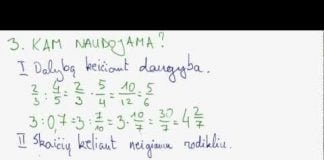 3. KAM NAUDOJAMA?
I Dalybą keičiant daugyba.
2/3 : 4/5 = 2/3 · 5/4 = 10/12 = 5/6
3 : 0,7 = 3 : 7/10 = 3 · 10/7 = 30/7 = 4 2/7
II Skaičių keliant neigiamu rodikliu.